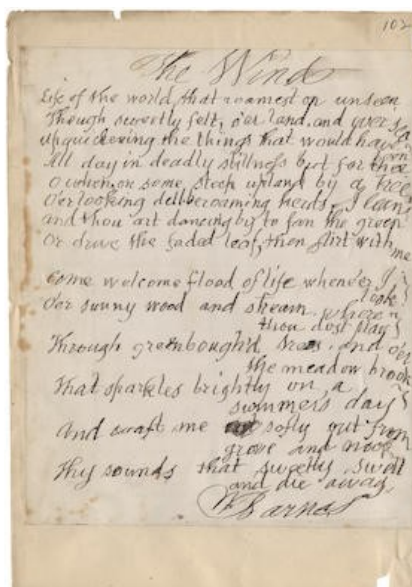 102
The Wind
Life of the world that roamest on unseen
Though sweetly felt, o'er land and
upquickening the things that would have
been
All day in deadly stillness but for thee
O when on some steep upland by a tree
O'erlooking dells beroaming herds, I lean
and thou art dancing by to fan the green
Or drive the faded leaf, then flirt with me
Come welcome flood of life whene'er I
look
O'er sunny wood and stream where on
thou dost play
Through greenbough'd trees and o'er
the meadow brook
That sparkles brightly on a
summers day
And waft me softly out from
grove and nook
Thy sounds that sweetly swell
and die away
W Barnes